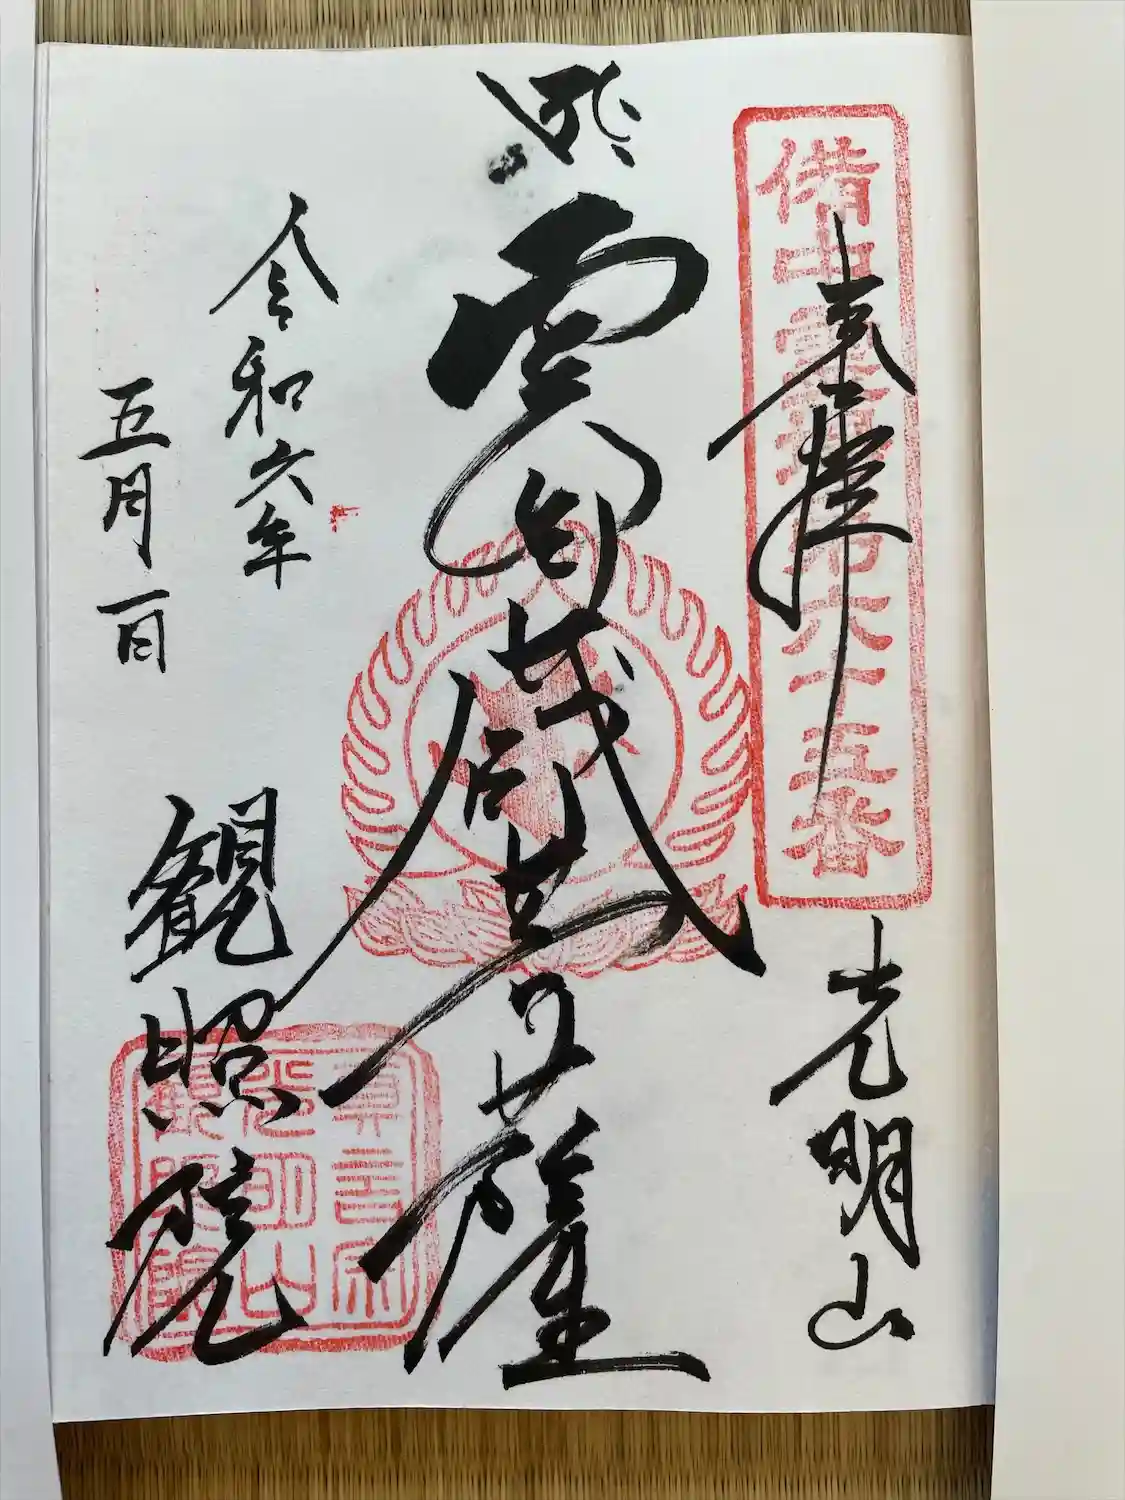 奉拝
備中霊場第六十五番
光明山
虚空蔵菩薩
令和六年
五月一日
観照院
真言宗
光明山
観照院